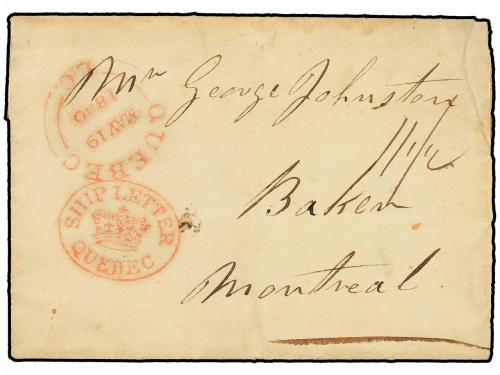 Mr George Johnston
11½
Baker
Montreal
QUEBEC L.C.
MAY 19
1840
SHIP LETTER
QUEBEC